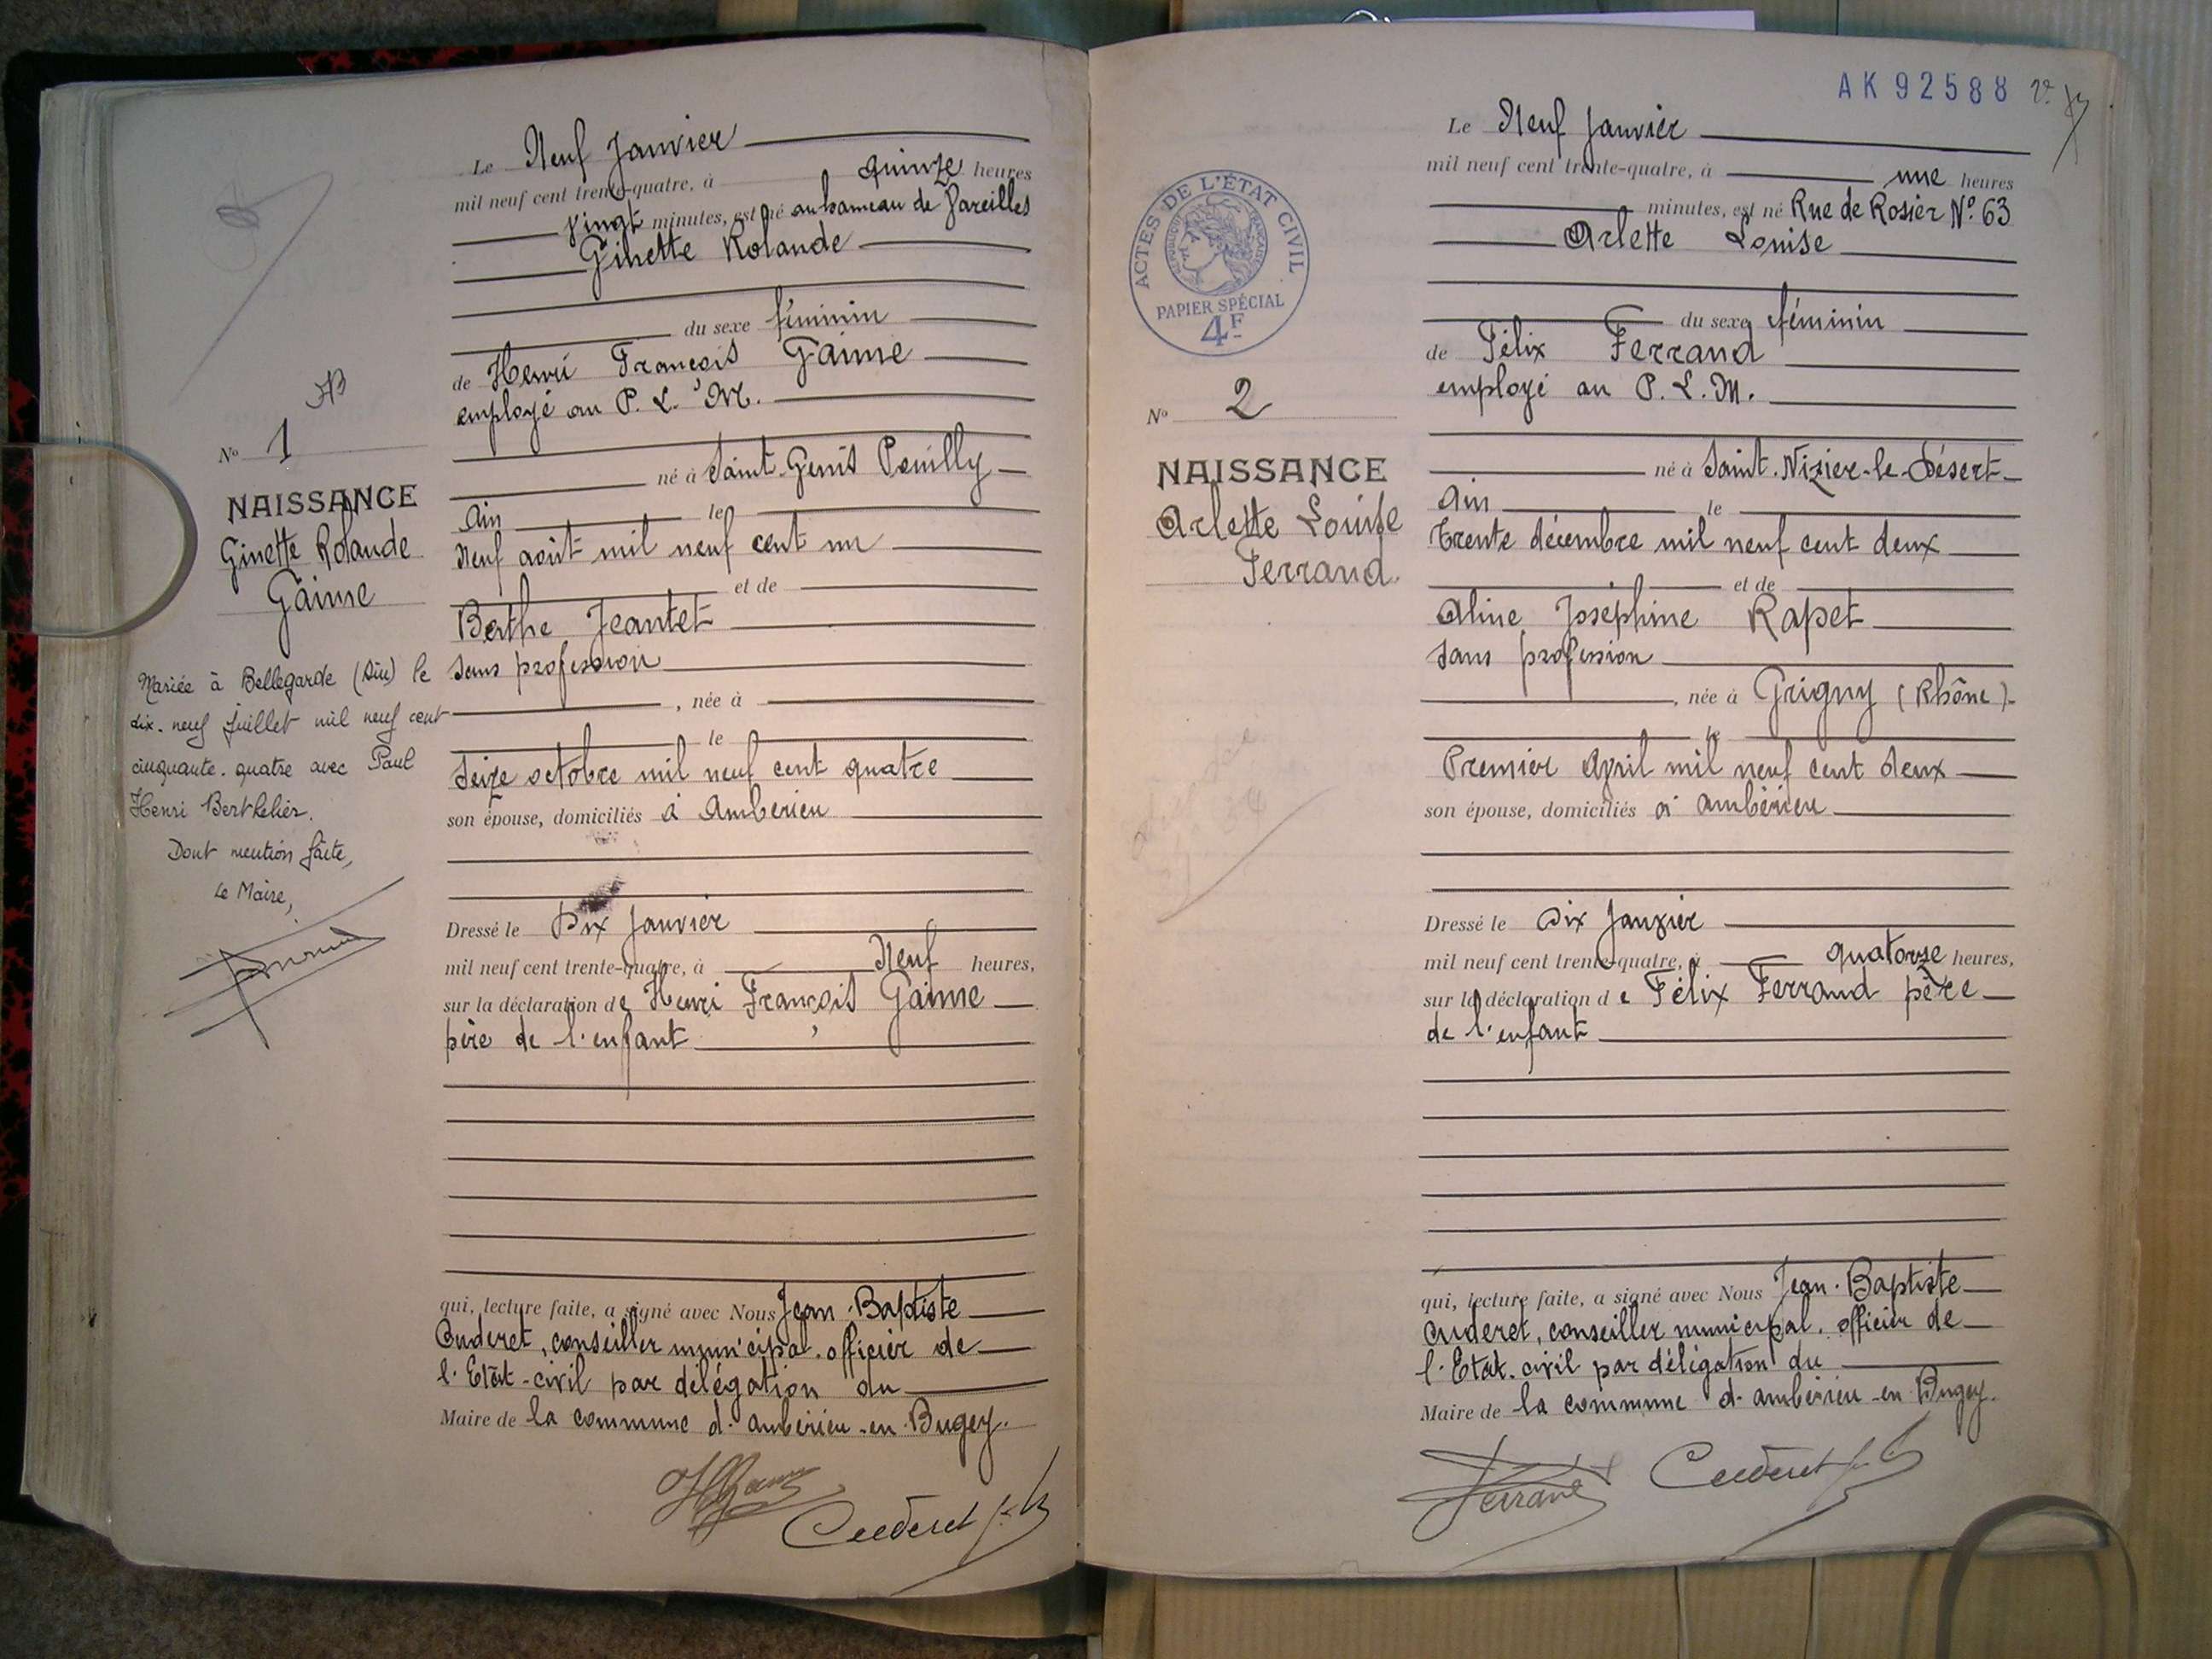 Le Neuf Janvier
mil neuf cent trente-quatre, à quinze heures
vingt minutes, est né au hameau de Vareilles
Ginette Rolande
du sexe féminin
de Henri François Gaime
employé au P. L. M.
né à Saint-Genis Pouilly
Ain le
Neuf août mil neuf cent un
et de
Berthe Jeantet
sans profession
, née à
le
Seize octobre mil neuf cent quatre
son épouse, domiciliés à Ambérieu
Dressé le Dix Janvier
mil neuf cent trente-quatre, à Neuf heures,
sur la déclaration de Henri François Gaime
père de l'enfant
qui, lecture faite, a signé avec Nous Jean-Baptiste
Cuderet, conseiller municipal. officier de
l'Etat-civil par délégation du
Maire de la commune d'Ambérieu-en-Bugey.
Cuderet
No 1
NAISSANCE
Ginette Rolande
Gaime
Mariée à Bellegarde (Ain) le
dix-neuf juillet mil neuf cent
cinquante-quatre avec Paul
Henri Berthelier.
Dont mention faite,
Le Maire,
AK 92588
Le Neuf Janvier
mil neuf cent trente-quatre, à une heures
minutes, est né Rue de Rosier No. 63
Arlette Louise
du sexe féminin
de Félix Ferrand
employé au P. L. M.
né à Saint-Nizier-le-Désert
Ain le
trente décembre mil neuf cent deux
et de
Aline Joséphine Rapet
Sans profession
, née à Grigny (Rhône)
le
Premier Avril mil neuf cent deux
son épouse, domiciliés à Ambérieu
Dressé le Dix Janvier
mil neuf cent trente-quatre, à quatorze heures,
sur la déclaration de Félix Ferrand père
de l'enfant
qui, lecture faite, a signé avec Nous Jean-Baptiste
Cuderet, conseiller municipal. officier de
l'Etat-civil par délégation du
Maire de la commune d'Ambérieu-en-Bugey.
Ferrand Cuderet
ACTES DE L'ÉTAT CIVIL
RÉPUBLIQUE FRANÇAISE
PAPIER SPÉCIAL
4F
No 2
NAISSANCE
Arlette Louise
Ferrand